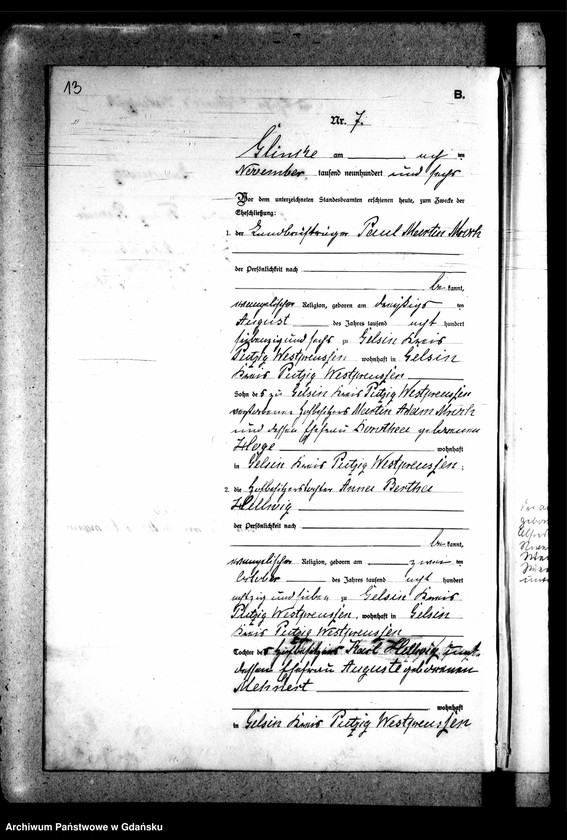 13
B.
Nr. 7.
Glinke am acht ten
November tausend neunhundert und sechs
Vor dem unterzeichneten Standesbeamten erschienen heute, zum Zwecke der
Eheschließung:
1. der Landbriefträger Paul Martin
der Persönlichkeit nach
be kannt,
evangelischer Religion, geboren am dreißigs ten
August des Jahres tausend acht hundert
siebenzig und sechs zu Gelsin Kreis
Putzig Westpreussen, wohnhaft in Gelsin
Kreis Putzig Westpreussen
Sohn des zu Gelsin Kreis Putzig Westpreussen
verstorbenen Hofbesitzers Martin Adam
und dessen Ehefrau Dorothea geborenen
wohnhaft
in Gelsin Kreis Putzig Westpreussen;
2. die Hofbesitzerstochter Anna Bertha
Hellwig
der Persönlichkeit nach
be kannt,
evangelischer Religion, geboren am zwei ten
October des Jahres tausend acht hundert
achtzig und sieben zu Gelsin Kreis
Putzig Westpreussen, wohnhaft in Gelsin
Kreis Putzig Westpreussen
Tochter des Hofbesitzers Karl Hellwig und
dessen Ehefrau Auguste geborenen
Mehnert
wohnhaft
in Gelsin Kreis Putzig Westpreussen
Archiwum Państwowe w Gdańsku